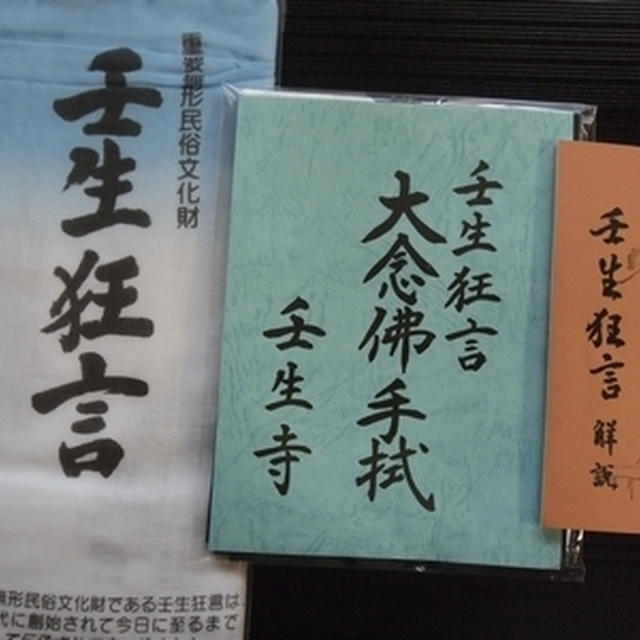 重要無形民俗文化財
壬生狂言
無形民俗文化財である壬生狂言は、
代に創始されて今日に至るまで
壬生狂言
大念佛手拭
壬生寺
壬生狂言 解説